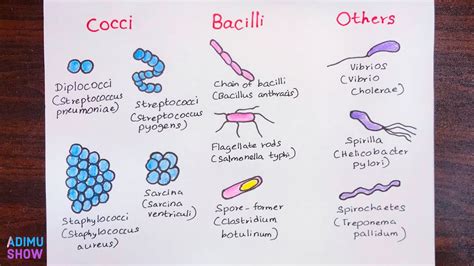 Cocci
Bacilli
Others
Diplococci
(Streptococcus
pneumoniae)
Streptococci
(Streptococcus
pyogens)
Staphylococci
(Staphylococcus
aureus)
Sarcina
(Sarcina
ventriculi)
Chain of bacilli
(Bacillus anthracis)
Flagellate rods
(Salmonella typhi)
Spore-former
(Clostridium
botulinum)
Vibrios
(Vibrio
cholerae)
Spirilla
(Helicobacter
pylori)
Spirochaetes
(Treponema
pallidum)
ADIMU
SHOW